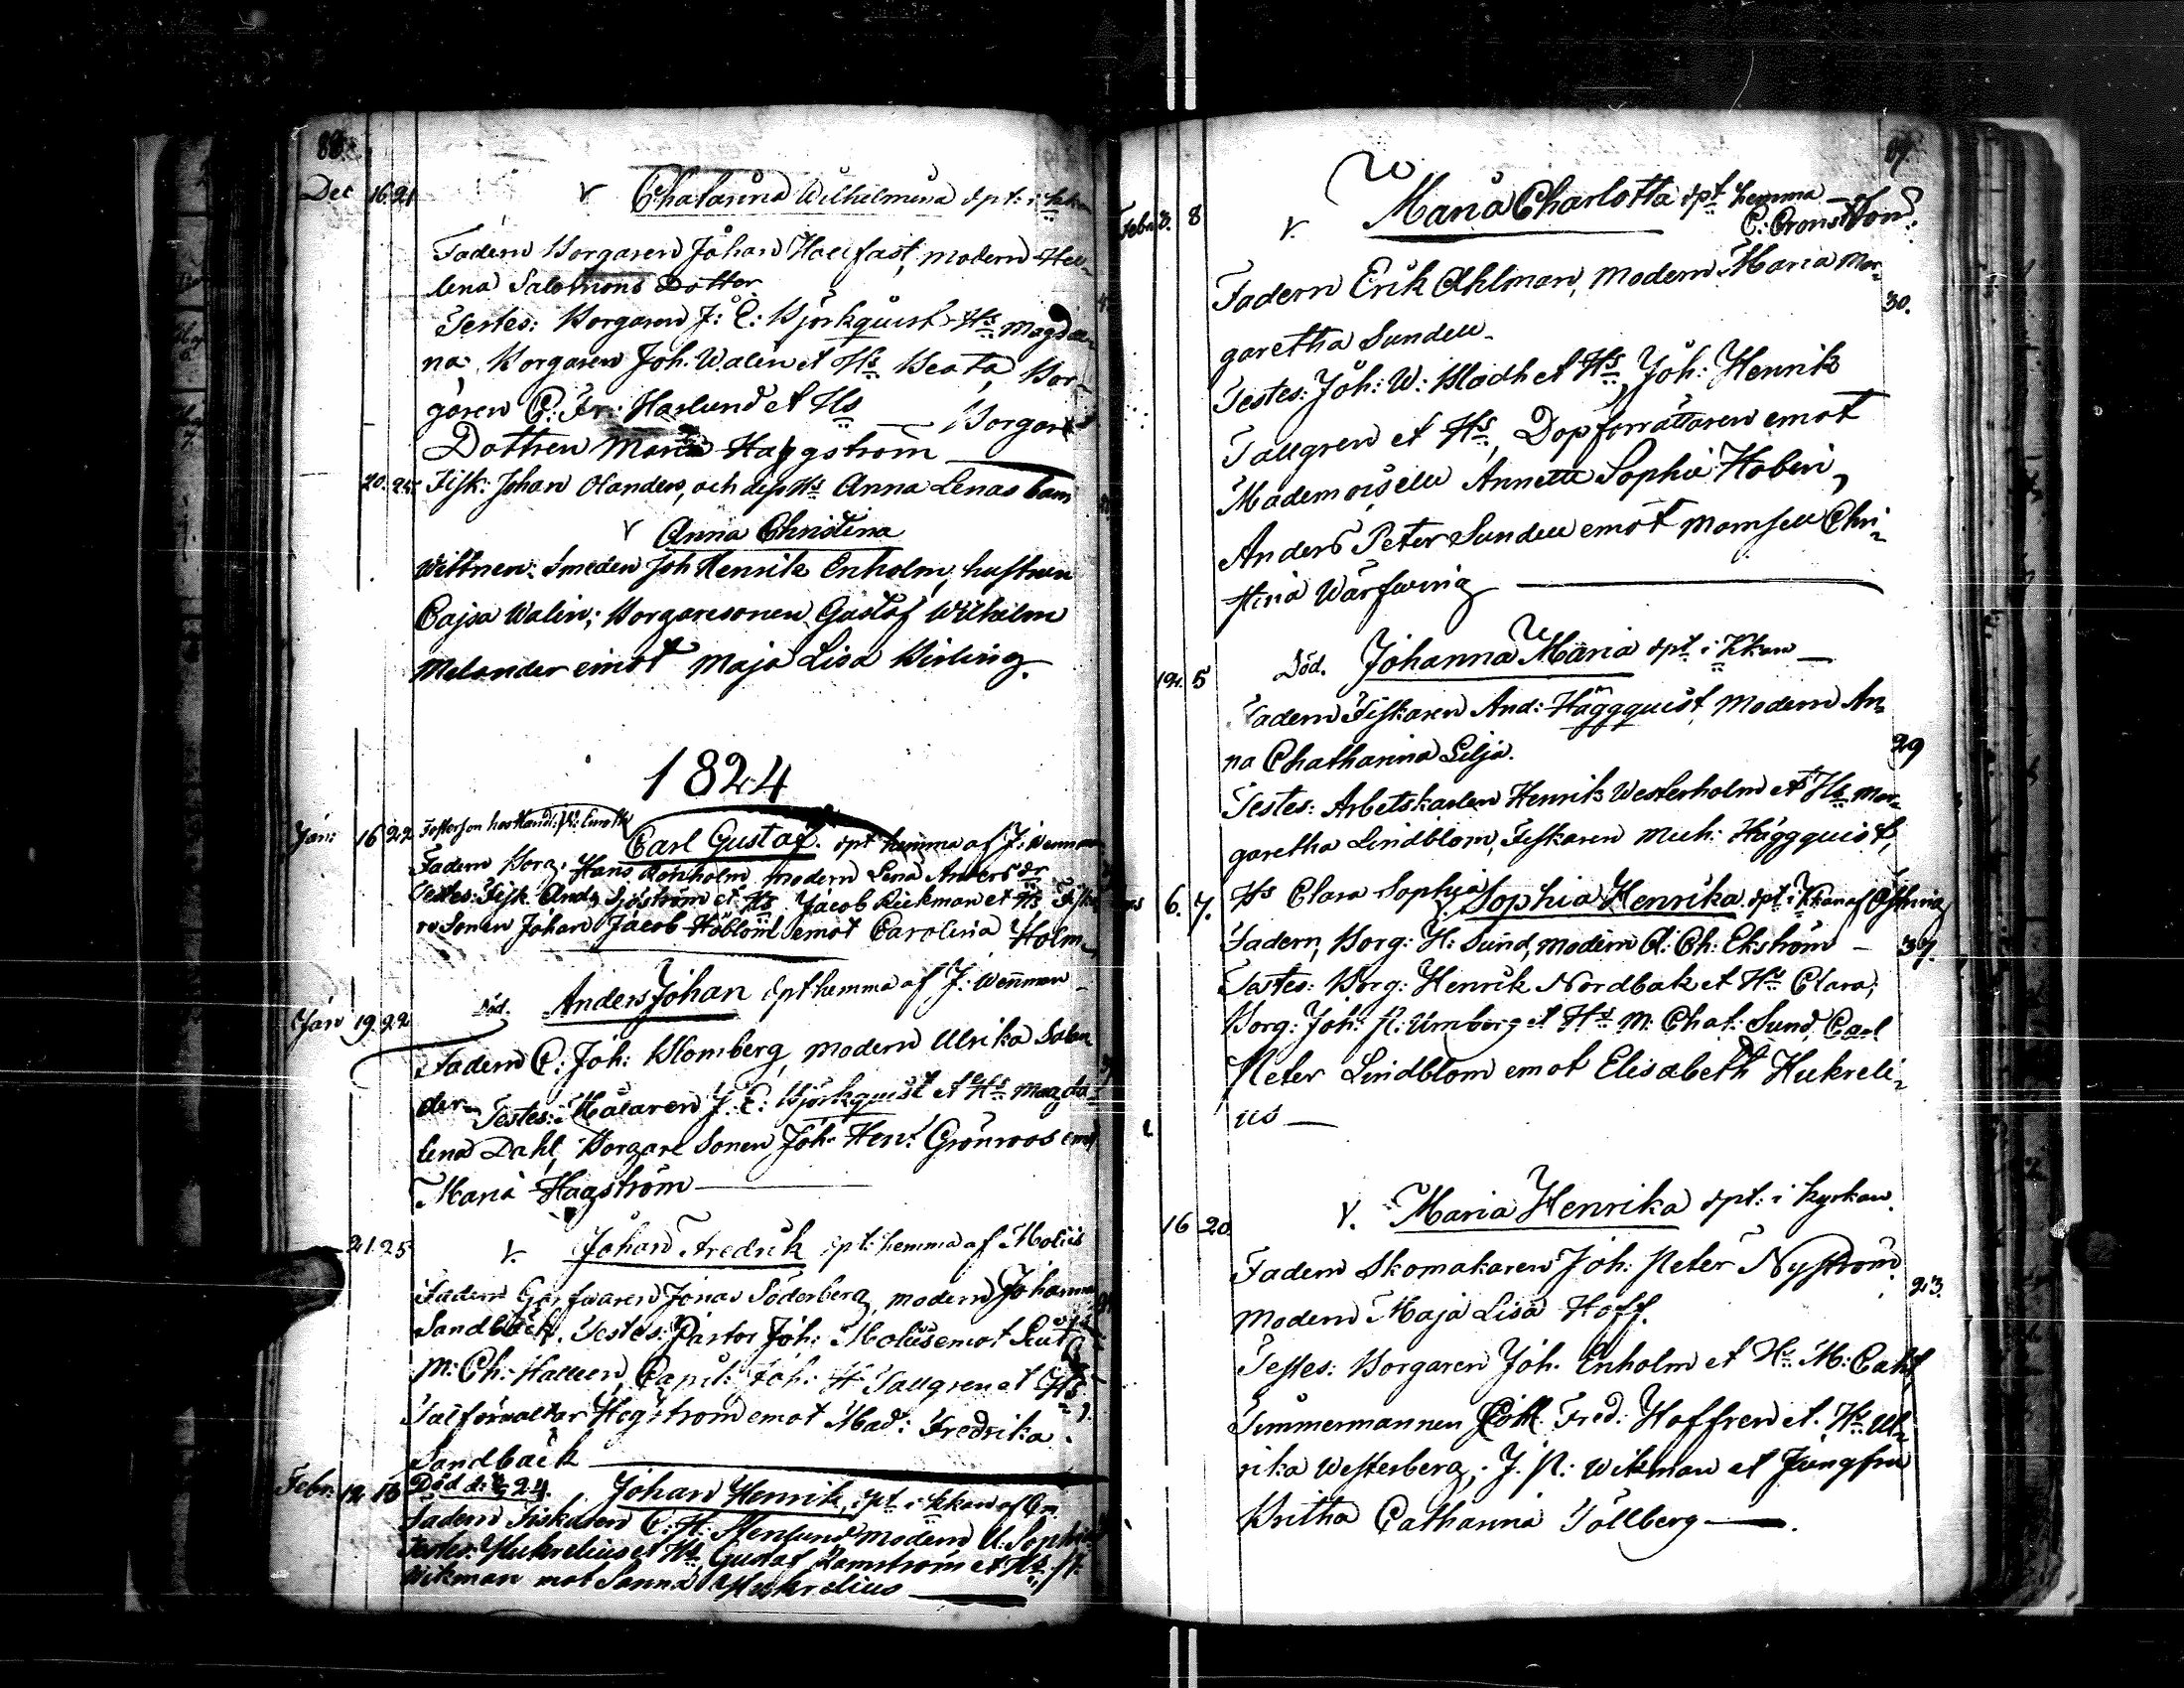 86.
Dec 16 21 v Chatarina Wilhelmina dpt: i kkan
Fadern Borgaren Johan Hallfast, modern Hel-
lena Salomons Dotter
Testes: Borgaren J: E: Björkquist Hs Magdale-
na, Borgaren Joh. Walen et Hs Beata, Bor-
garen C: Fr: Haslund et Hs Borgare
Dottren Maria Häggström
20. 25. Fisk: Johan Olanders, och dess Hs Anna Lenas barn
v Anna Christina
Wittnen: Smeden Joh Henrik Enholm, hustrun
Cajsa Walin; Borgaresonen Gustaf Wilhelm
Melander emot Maja Lisa Kisling.
1824
Jan: 16 22 Fosterson hos Handl: P:
Carl Gustaf. dpt hemma af J: Wenman
Fadern Borg: Hans Rönholm modern Lena Anders dr
Testes: Fisk And: Sjöström et Hs Jacob Rickman et Hs Fiska
re Sonen Johan Jacob Höblom emot Carolina Holm
Jan 19 22 Död. Anders Johan dpt hemma af J: Wenman
Fadern C: Joh: Blomberg, modern Ulrika Salan
der Testes: Målaren J: E: Björkquist et Hs Magda-
lena Dahl, Borgare Sonen Joh: Hen: Grönroos emot
Maria Hägström
21. 25 v. Johan Fredrik dpt: hemma af Molius
Fadern Garfvaren Jonas Söderberg, modern Johanna
Sandbäck. Testes: Pastor Joh: Molius emot
M: Ch: Halleen, Capit: Joh: H: Tallgren et Hs
förvaltar Hegström emot Mad: Fredrika
Sandbäck
Febr: 12 13 Död d: 24. Johan Henrik, dpt i kkan af
Fadern Fiskaren C: H: Stenlund modern U: Sophia
Testes: Hukrelius et Hs Gustaf Ramström et Hs P:
Wikman mot Sanna Hukrelius
87.
Febr 3. 8 v. Maria Charlotta dpt hemma
C: Cronström
Fadern Erik Ahlman, modern Maria Mar-
30.
garetha Sundell
Testes: Joh: W: Bladh et Hs, Joh: Henrik
Tallgren et Hs, Dopförrättaren emot
Mademoiselle Annette Sophie Hoberi,
Anders Peter Sundell emot Mamsell Chri-
stina Warfwing
5 Död. Johanna Maria dpt i kkan
Fadern Fiskaren And: Häggquist, modern An-
29
na Chatharina Lilja.
Testes: Arbetskarlen Henrik Westerholm et Hs Mar-
garetha Lindblom, Fiskaren Mich: Häggquist,
Hs Clara Sophia
6. 7. Sophia Henrika dpt: i kkan af Östring
Fadern, Borg: H: Sund, modern A: Ch: Ekström 37.
Testes: Borg: Henrik Nordbak et Hs Clara,
Borg: Joh: P: Urnberg et Hs M: Chat: Sund, Carl
Peter Lindblom emot Elisabeth Hukreli-
us
16 20 v. Maria Henrika dpt: i kyrkan
Fadern Skomakaren Joh: Peter Nyström
23.
modern Maja Lisa Hoff.
Testes: Borgaren Joh. Enholm et Hs M: Cath,
Timmermannen Fred: Hoffren et Hs Ul-
rika Westerberg; J. P: Wikman et Jungfru
Britha Catharina Tollberg